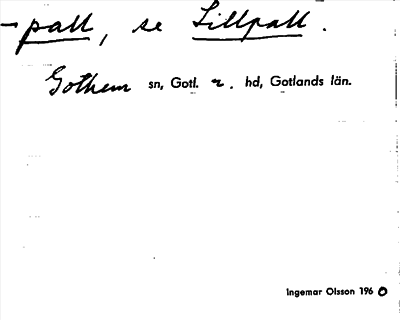 -pall, se Lillpall.
Gothem sn, Gotl. n. hd, Gotlands län.
Ingemar Olsson 1960